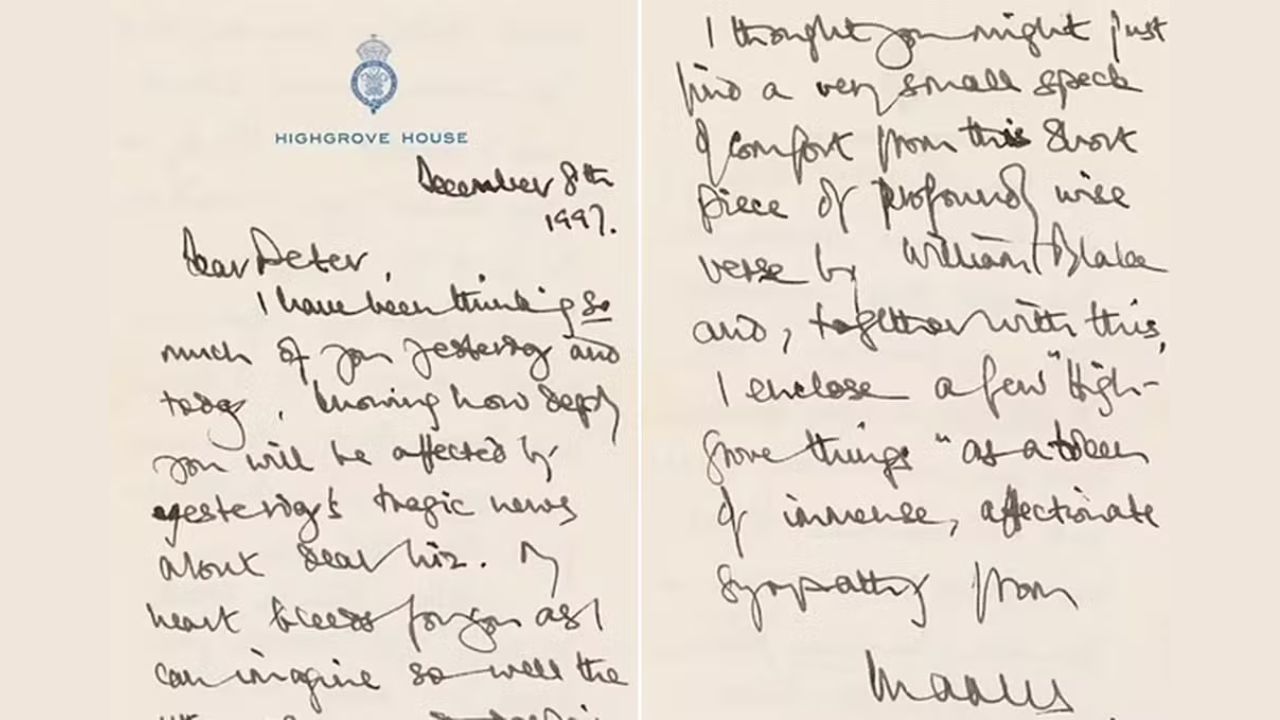 HIGHGROVE HOUSE
December 8th
1997.
Dear Peter,
I have been thinking so
much of you yesterday and
today, knowing how deeply
you will be affected by
yesterday's tragic news
about dear Liz. My
heart bleeds for you as I
can imagine so well the
I thought you might just
find a very small speck
of comfort from this short
piece of profoundly wise
verse by William Blake
and, together with this,
I enclose a few "High-
grove things" as a token
of immense, affectionate
sympathy from
Charles